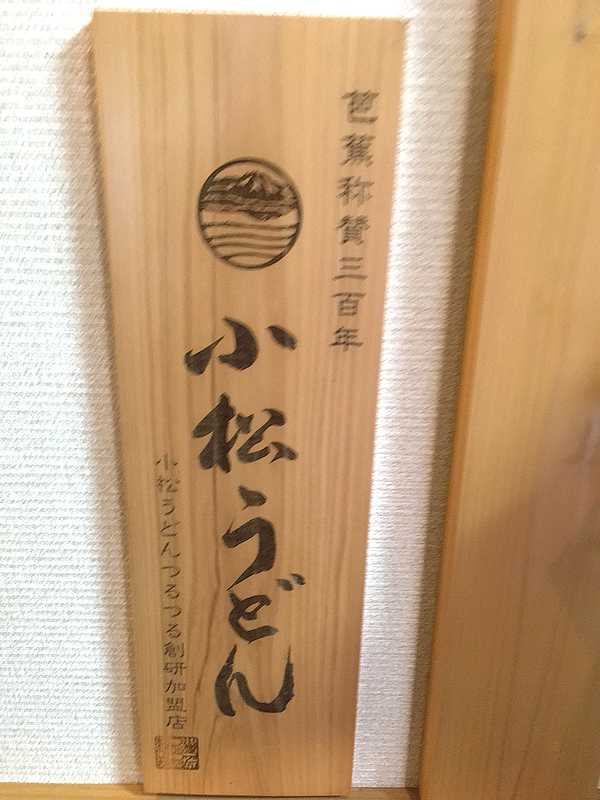 芭蕉称賛三百年
小松うどん
小松うどんつるつる創研加盟店